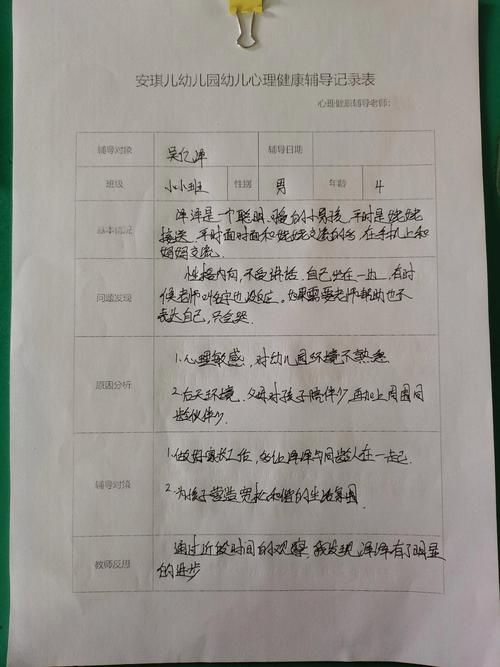 安琪儿幼儿园幼儿心理健康辅导记录表
心理健康辅导老师:
辅导对象 吴亿泽 辅导日期
班级 小小班 性别 男 年龄 4
基本情况
泽泽是一个聪明、的小男孩,平时是姥姥
接送,平时面对面和姥姥交流的多,在手机上和
妈妈交流.
问题发现
性格内向,不爱讲话.自己坐在一边,有时
候老师叫名字也没反应。如果需要老师帮助也不
表达自己,只会哭.
原因分析
1.心理敏感,对幼儿园环境不熟悉
2.后天环境.父母对孩子陪伴少,再加上周围同
龄伙伴少.
辅导对策
1.做好家长工作,多让泽泽与同龄人在一起.
2.为孩子营造宽松和谐的生活氛围
教师反思
通过近段时间的观察,我发现泽泽有了明显
的进步